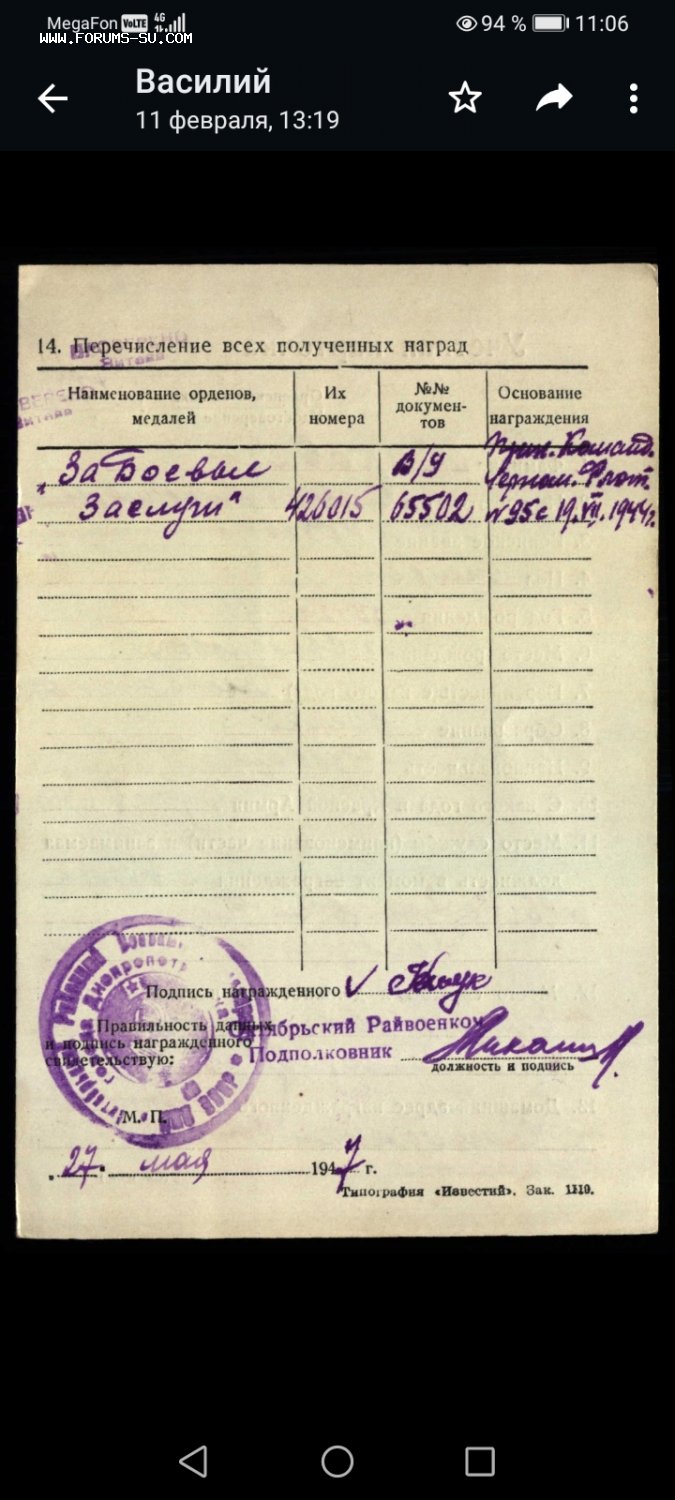 MegaFon VoLTE 4G 94 % 11:06
www.FORUMS-SU.COM
Василий
11 февраля, 13:19
14. Перечисление всех полученных наград
Наименование орденов, медалей
Их номера
№№ докумен-тов
Основание награждения
"За Боевые В/У Прик. Команд. Черном. Флот.
Заслуги" 426015 65502 №95 с 19.VII.1944г.
Подпись награжденного
Правильность данных
и подпись награжденного
свидетельствую:
Октябрьский Райвоенком
Подполковник
должность и подпись
М. П.
27 мая 1947 г.
Типография «Известий». Зак. 1110.